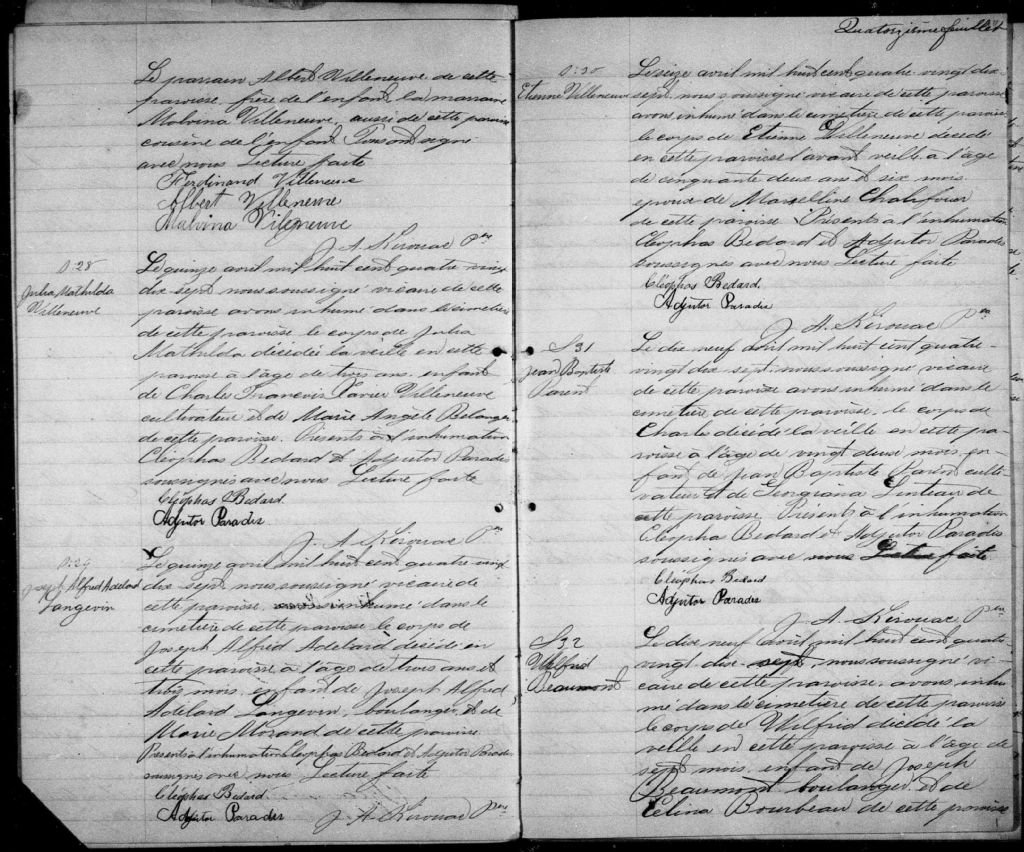 Le parrain Albert Villeneuve de cette
paroisse, frère de l'enfant la marraine
Malvina Villeneuve, aussi de cette paroisse
cousine de l'enfant Tous ont signé
avec nous Lecture faite
Ferdinand Villeneuve
Albert Villeneuve
Malvina Vileneuve
J. A. Kirouac Ptre
S. 28
Julia Mathilda
Villeneuve
Le quinze avril mil huit cent quatre vingt
dix sept nous soussigné vicaire de cette
paroisse avons inhumé dans le cimetière
de cette paroisse le corps de Julia
Mathilda décédée la veille en cette
paroisse à l'âge de trois ans enfant
de Charles François Xavier Villeneuve
cultivateur et de Marie Angèle Belanger
de cette paroisse. Présents à l'inhumation
Cléophas Bedard et Adjutor Paradis
soussignés avec nous Lecture faite
Cléophas Bedard.
Adjutor Paradis
J. A. Kirouac Ptre
S. 29
Joseph Alfred Adelard
Langevin
Le quinze avril mil huit cent quatre vingt
dix sept nous soussigné vicaire de
cette paroisse, inhumé dans le
cimetière de cette paroisse le corps de
Joseph Alfred Adelard décédé en
cette paroisse à l'âge de trois ans et
trois mois, enfant de Joseph Alfred
Adelard Langevin, boulanger, et de
Marie Morand de cette paroisse
Présents à l'inhumation Cleophas Bedard et Adjutor Paradis
sousignés avec nous Lecture faite
Cléophas Bedard
Adjutor Paradis
J. A. Kirouac Ptre
Quatorzième feuillet
S. 30
Etienne Villeneuve
Le seize avril mil huit cent quatre vingt dix
sept, nous soussigné vicaire de cette paroisse
avons inhumé dans le cimetière de cette paroisse
le corps de Etienne Villeneuve décédé
en cette paroisse l'avant veille à l'âge
de cinquante deux ans et six mois
epoux de Marselline Chalifour
de cette paroisse Présents à l'inhumation
Cléophas Bedard et Adjutor Paradis
soussignés avec nous Lecture faite
Cléophas Bedard.
Adjutor Paradis
J. A. Kirouac Ptre
S 31
Jean Baptiste
Parent
Le dix neuf avril mil huit cent quatre-
vingt dix sept, nous soussigné vicaire
de cette paroisse avons inhumé dans le
cimetière de cette paroisse, le corps de
Charles décédé la veille en cette pa-
roisse à l'âge de vingt deux mois, en-
fant de Jean Baptiste Parent culti-
vateur et de Georgiana Linteau de
cette paroisse Présents à l'inhumation
Cléophas Bedard et Adjutor Paradis
soussignés avec nous Lecture faite
Cléophas Bedard
Adjutor Paradis
J. A. Kirouac Ptre
S 32
Wilfrid
Beaumont
Le dix neuf avril mil huit cent quatre
vingt dix-sept, nous soussigné vi-
caire de cette paroisse, avons inhu-
mé dans le cimetière de cette paroisse
le corps de Wilfrid décédé la
veille en cette paroisse à l'âge de
sept mois, enfant de Joseph
Beaumont boulanger et de
Celina Bourbeau de cette paroisse